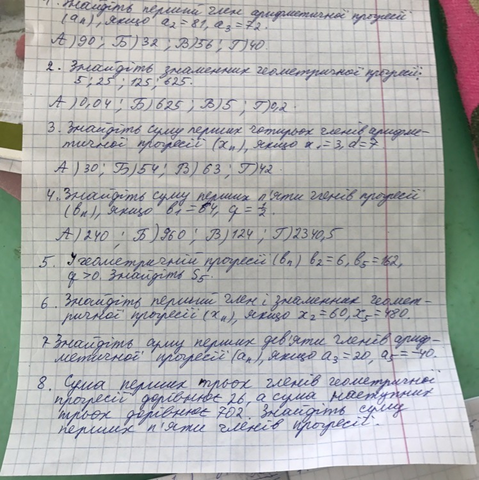 1. Знайдіть перший член арифметичної прогресії
(aₙ), якщо a₂=81, a₃=72.
А) 90; Б) 32; В) 56; Г) 40.
2. Знайдіть знаменник геометричної прогресії
5; 25; 125; 625.
А) 0,04; Б) 625; В) 5; Г) 0,2.
3. Знайдіть суму перших чотирьох членів арифме-
тичної прогресії (xₙ), якщо x₁=3, d=7
А) 30; Б) 54; В) 63; Г) 42
4. Знайдіть суму перших п'яти членів прогресії
(bₙ), якщо b₁=64, q=1/2.
А) 240; Б) 960; В) 124; Г) 2340,5
5. У геометричній прогресії (bₙ) b₂=6, b₅=162,
q>0. Знайдіть S₅.
6. Знайдіть перший член і знаменник геомет-
ричної прогресії (xₙ), якщо x₂=60, x₅=480.
7. Знайдіть суму перших дев'яти членів ариф-
метичної прогресії (aₙ), якщо a₃=20, a₅=-40.
8. Сума перших трьох членів геометричної
прогресії дорівнює 26, а сума наступних
трьох дорівнює 702. Знайдіть суму
перших п'яти членів прогресії.